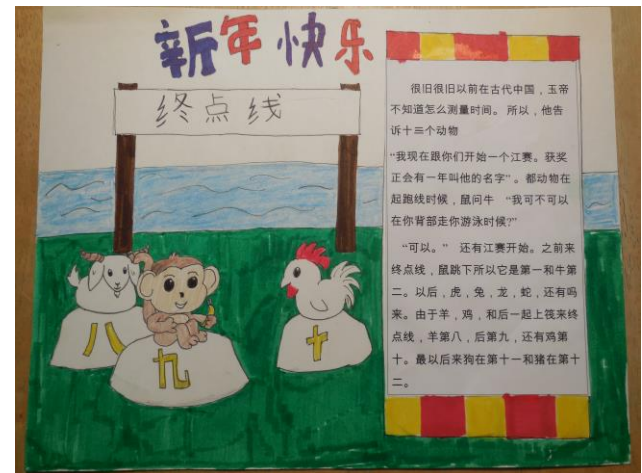 新年快乐
终点线
很旧很旧以前在古代中国，玉帝
不知道怎么测量时间。 所以，他告
诉十三个动物
“我现在跟你们开始一个江赛。获奖
正会有一年叫他的名字” 。都动物在
起跑线时候，鼠问牛 “我可不可以
在你背部走你游泳时候?”
“可以。” 还有江赛开始。之前来
终点线，鼠跳下所以它是第一和牛第
二。以后，虎，兔，龙，蛇，还有吗
来。由于羊，鸡，和后一起上筏来终
点线，羊第八，后第九，还有鸡第
十。最以后来狗在第十一和猪在第十
二。
八
九
十